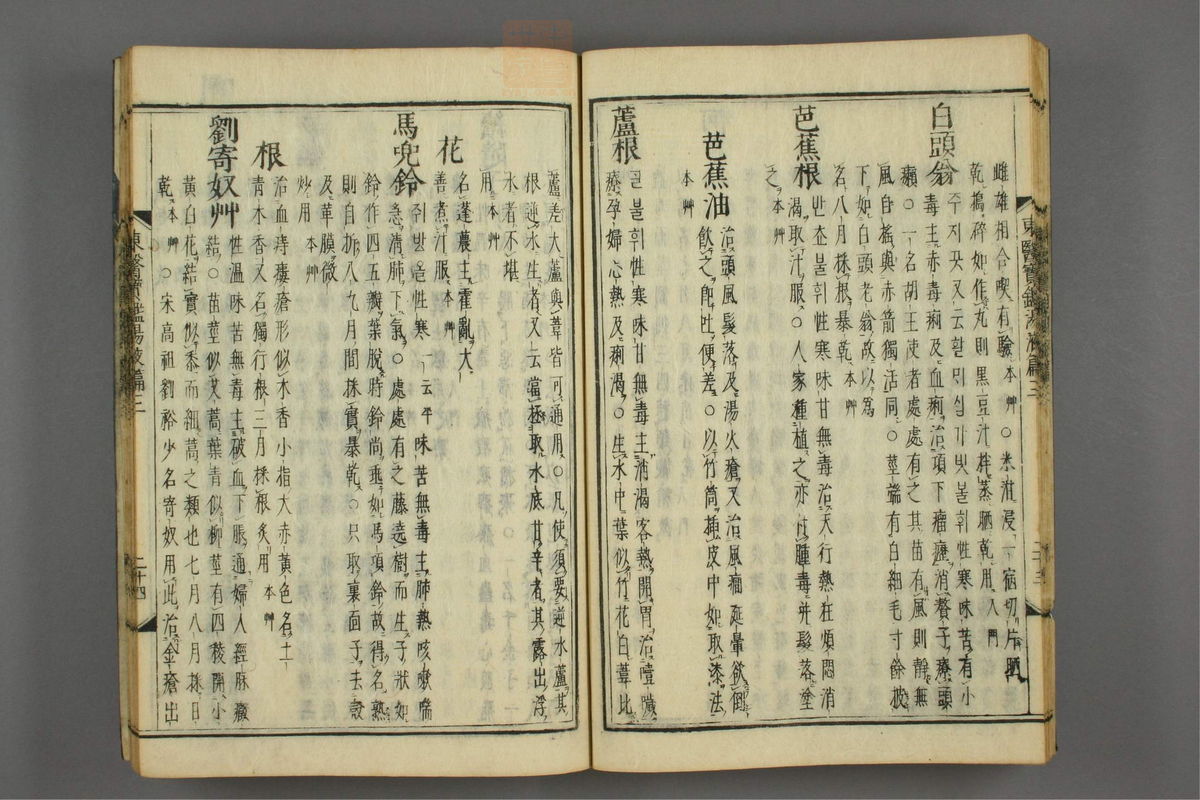 雌雄相合喫有驗本艸○米泔浸一宿切片晒
乾搗碎如作丸則黒豆汁拌蒸晒乾用入門
白頭翁
주지곳又云할미십가비블휘性寒味苦有小
毒主赤毒痢及血痢治項下瘤癧消贅子療頭
癩○一名胡王使者處處有之其苗有風則靜無
風自搖與赤箭獨活同○莖端有白細毛寸餘披
下如白頭老翁故以爲
名八月採根暴乾本艸
芭蕉根
반쵸블휘性寒味甘無毒治天行熱狂煩悶消
渴取汁服○人家種植之亦付腫毒幷髮落塗
之本艸
芭蕉油
治頭風髮落及湯火瘡又治風癎延暈欲倒
飮之卽吐便差○以竹筒揷皮中如取漆法
本艸
蘆根
블휘性寒味甘無毒主消渴客熱開胃治噎噦
療孕婦心熱及痢渴○生水中葉似竹花白葦比
蘆差大蘆與葦皆可通用○凡使須要逆水蘆其
根逆水生者又云宜極取水底甘辛者其露出浮
水者不堪
用本艸
花
名蓬蕽主霍亂大
善煮汁服本艸
馬兜鈴
쥐방올性寒一云平味苦無毒主肺熱咳嗽喘
急淸肺下氣○處處有之藤遶樹而生子狀如
鈴作四五瓣葉脫時鈴尙垂如馬項鈴故得名熟
則自折八九月間採實暴乾○只取裏面子去殼
及革膜微
炒用本艸
根
治血痔瘻瘡形似木香小指大赤黃色名土
青木香又名獨行根三月採根炙用本艸
劉寄奴艸
性溫味苦無毒主破血下脹通婦人經脉癥
結○苗莖似艾蒿葉青似柳莖有四稜開小
黃白花結實似黍而細蒿之類也七月八月採日
乾本艸○宋高祖劉裕少名寄奴用此治金瘡出
東醫寶鑑湯液篇三
二十四